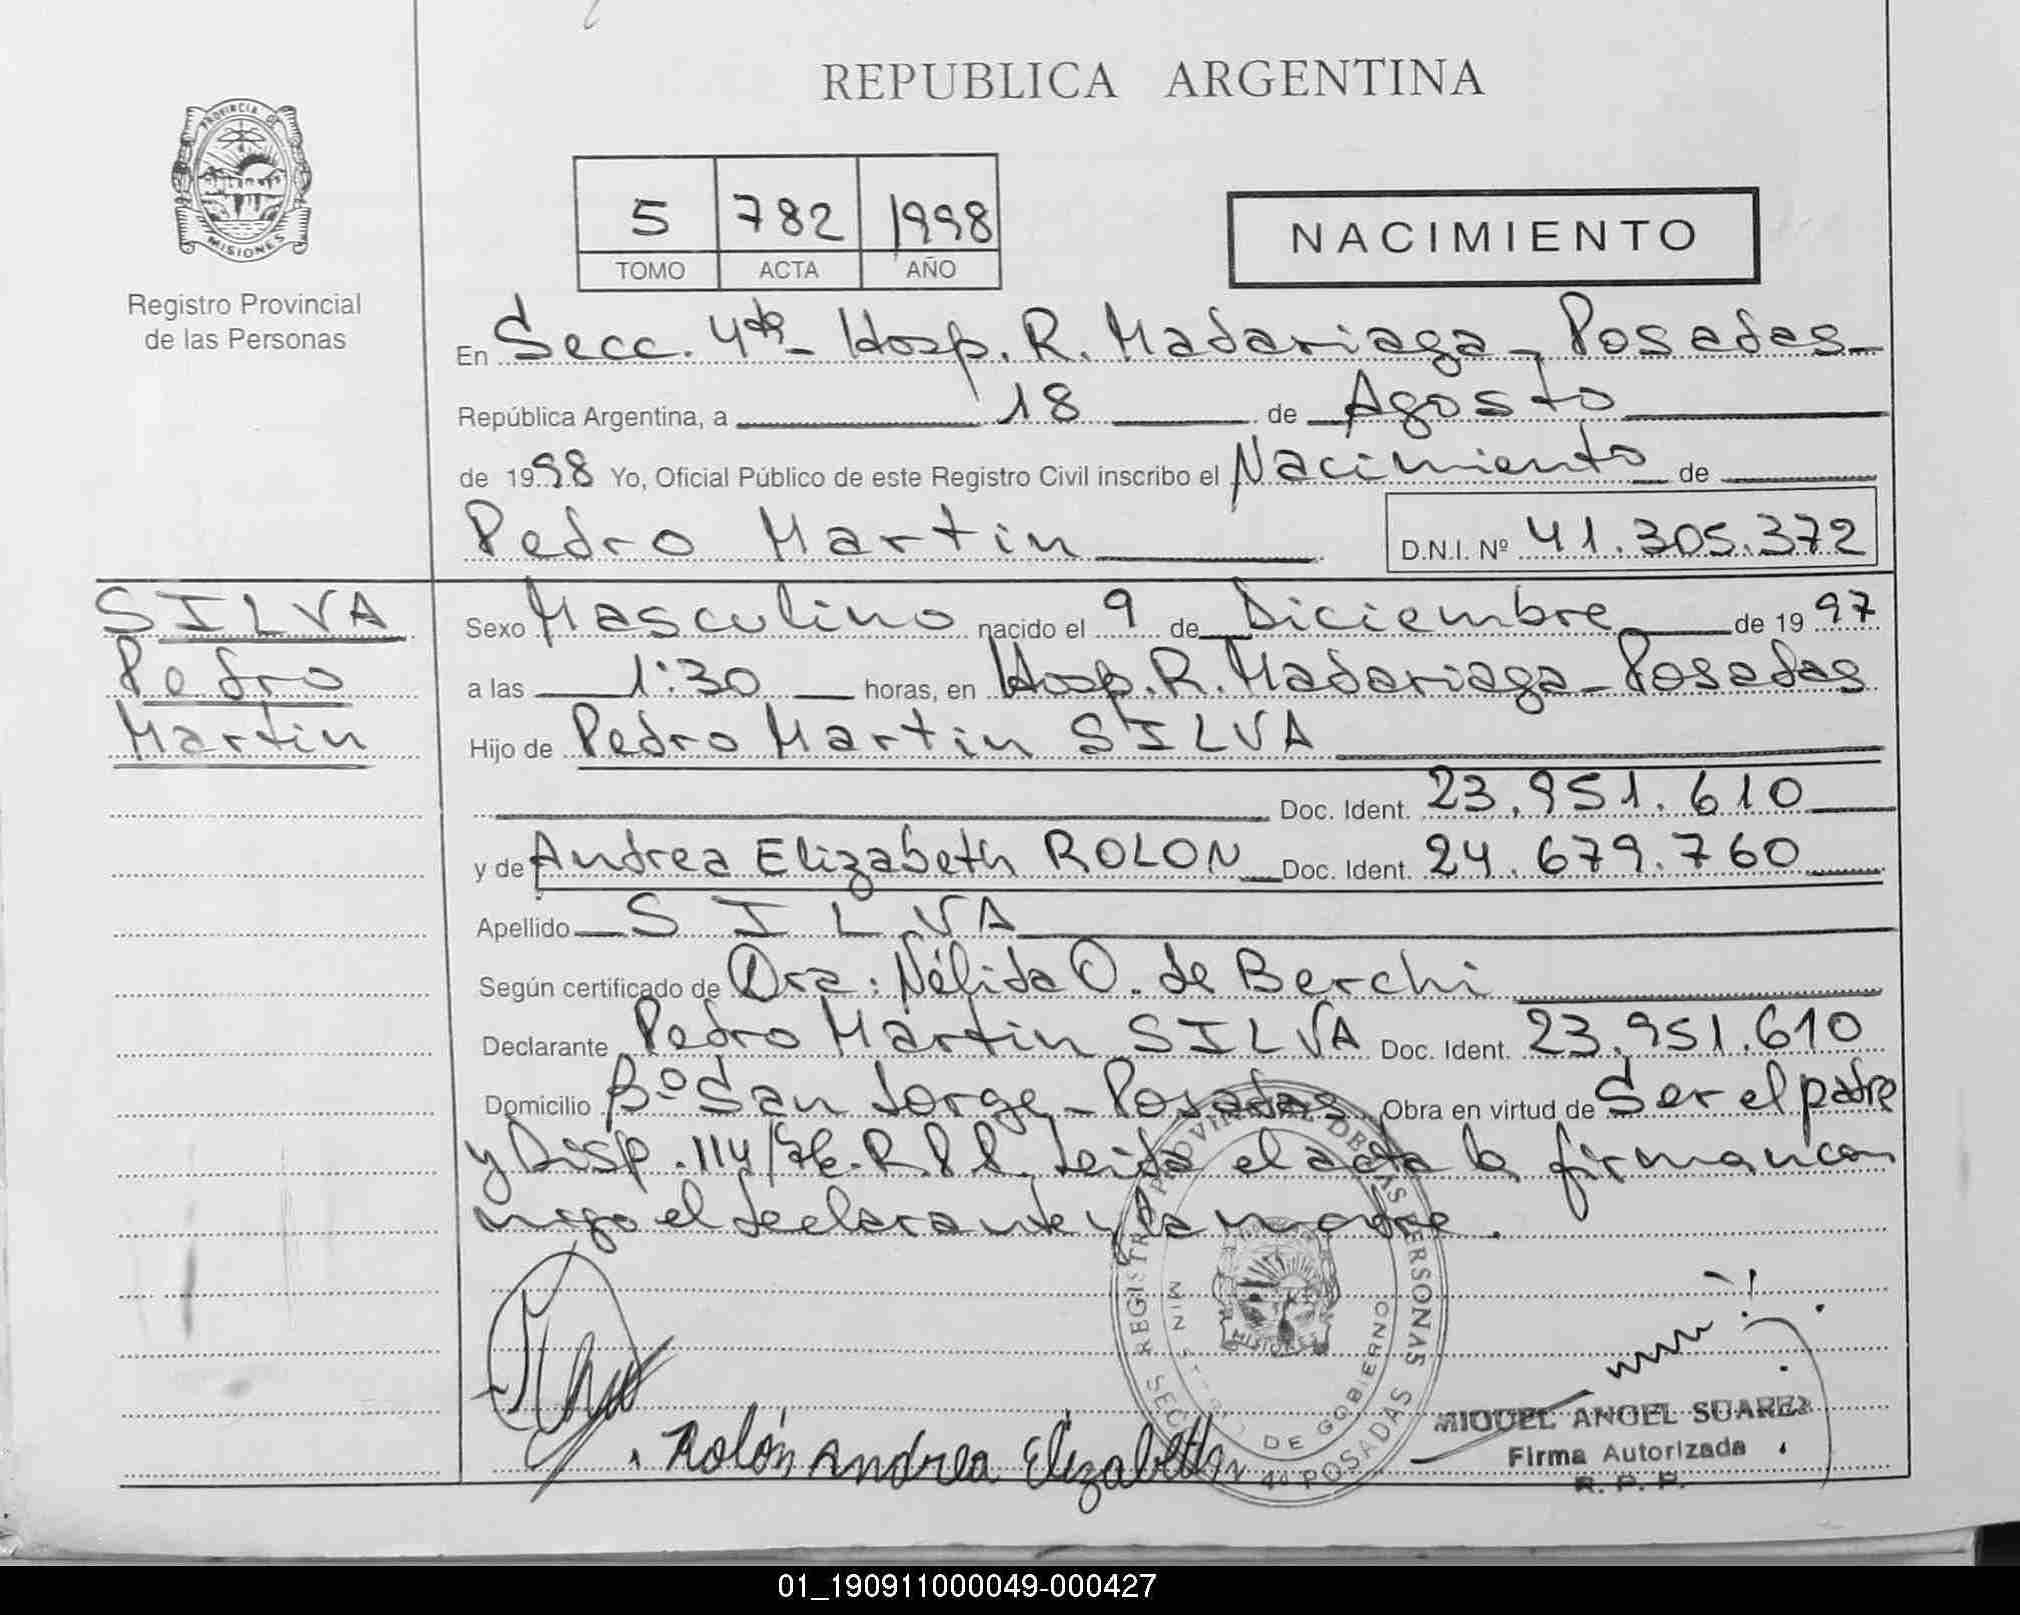 REPUBLICA ARGENTINA
PROVINCIA DE
MISIONES
Registro Provincial
de las Personas
5 782 1998
TOMO ACTA AÑO
NACIMIENTO
En Secc. 4ta - Hosp. R. Madariaga - Posadas -
República Argentina, a 18 de Agosto
de 1998 Yo, Oficial Público de este Registro Civil inscribo el Nacimiento de
Pedro Martin D.N.I. Nº 41.305.372
SILVA
Pedro
Martin
Sexo Masculino nacido el 9 de Diciembre de 1997
a las 1:30 horas, en Hosp. R. Madariaga - Posadas
Hijo de Pedro Martin SILVA
Doc. Ident. 23.951.610
y de Andrea Elizabeth ROLON Doc. Ident. 24.679.760
Apellido SILVA
Según certificado de Dra: Nélida O. de Berchi
Declarante Pedro Martin SILVA Doc. Ident. 23.951.610
Domicilio Bº San Jorge - Posadas Obra en virtud de Ser el padre
y Disp. 114/ R.P.P. Leida el acta la firman con
migo el declarante y la madre.
REGISTRO PROVINCIAL DE LAS PERSONAS
MINISTERIO DE GOBIERNO
MISIONES
SECC 4ª POSADAS
Rolón Andrea Elizabeth
MIGUEL ANGEL SUAREZ
Firma Autorizada
R. P. P.
01_190911000049-000427